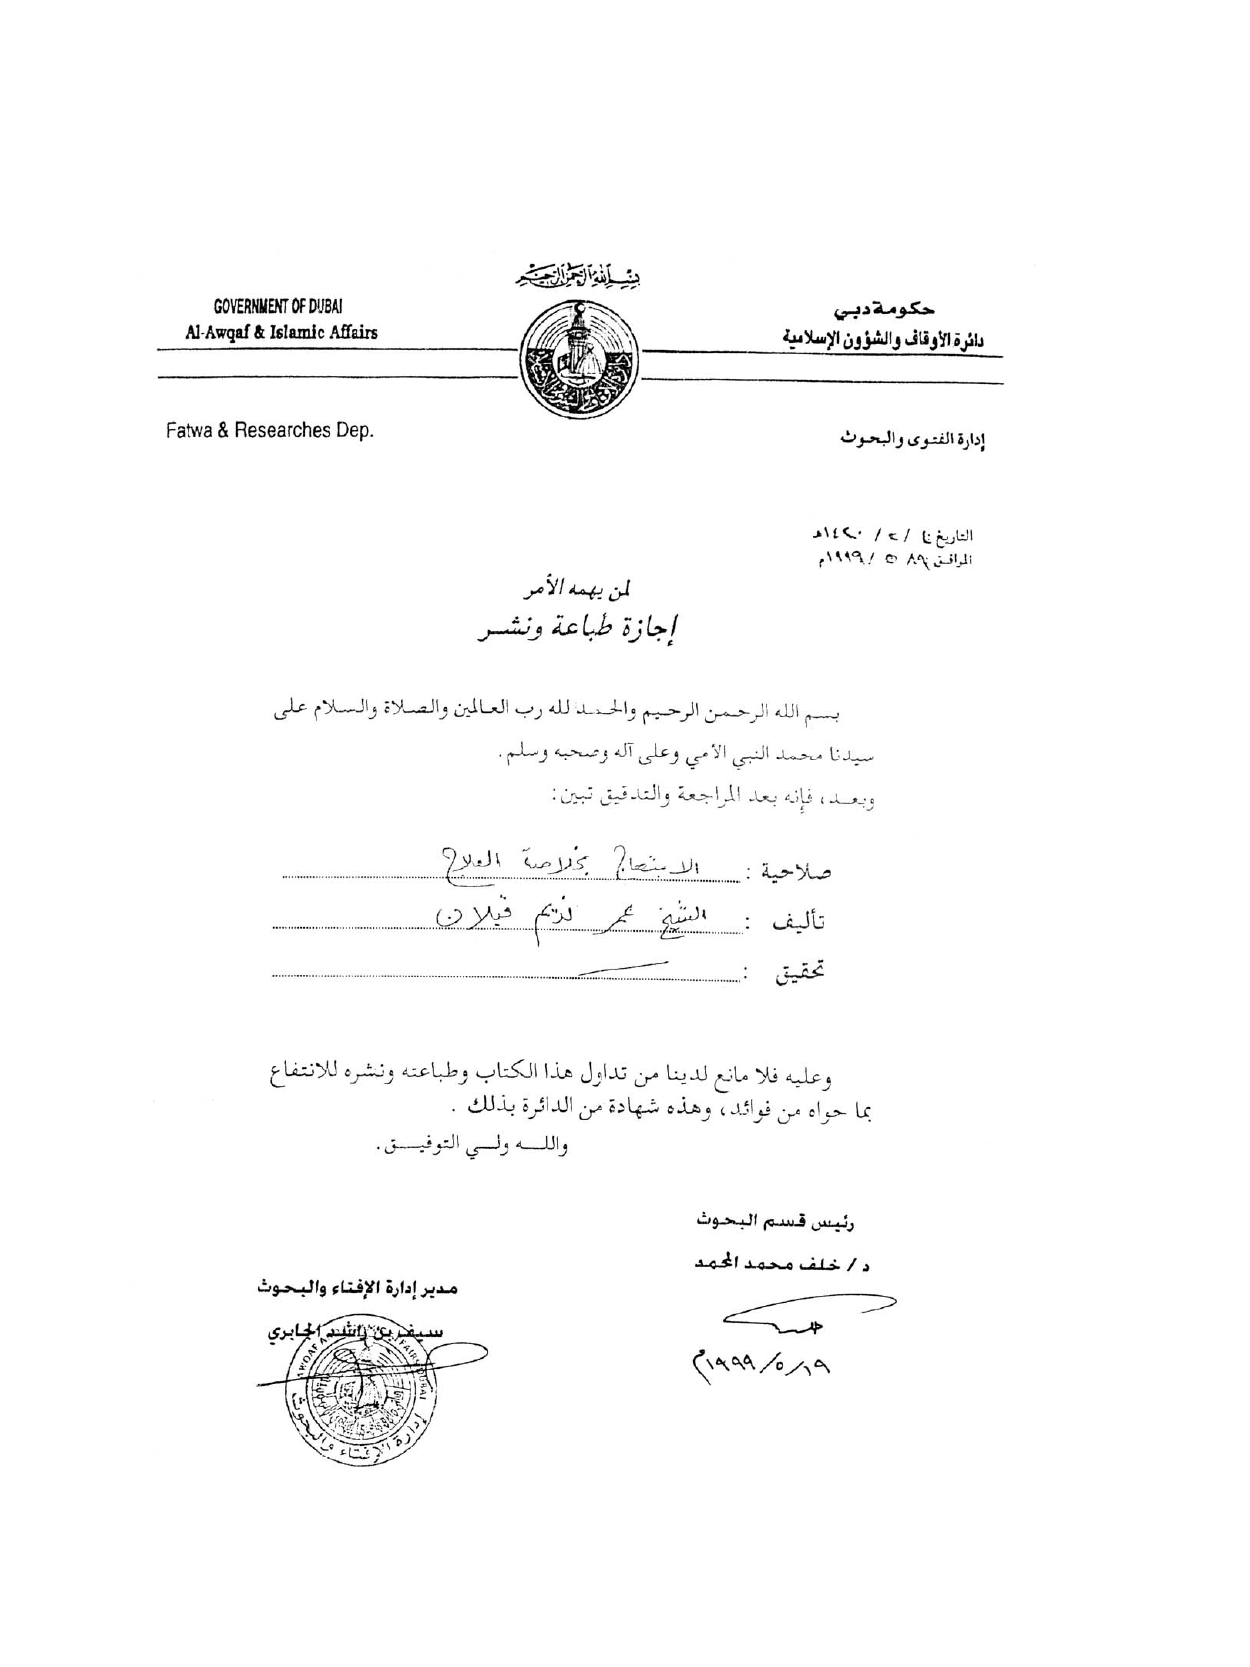 بسم الله الرحمن الرحيم
GOVERNMENT OF DUBAI
Al-Awqaf & Islamic Affairs
حكومة دبي
دائرة الأوقاف والشؤون الإسلامية
Fatwa & Researches Dep.
إدارة الفتوى والبحوث
التاريخ / ١٤٢٠هـ
الموافق / ٥ / ١٩٩٩م
لمن يهمه الأمر
إجازة طباعة ونشر
بسم الله الرحمن الرحيم والحمد لله رب العالمين والصلاة والسلام على
سيدنا محمد النبي الأمي وعلى آله وصحبه وسلم.
وبعد، فإنه بعد المراجعة والتدقيق تبين:
صلاحية : الابتهاج بخلاصة العلاج
تأليف : الشيخ عمر نديم قبلان
تحقيق :
وعليه فلا مانع لدينا من تداول هذا الكتاب وطباعته ونشره للانتفاع
بما حواه من فوائد، وهذه شهادة من الدائرة بذلك .
والله ولي التوفيق.
رئيس قسم البحوث
د/ خلف محمد المحمد
١٩/٥/١٩٩٩م
مدير إدارة الإفتاء والبحوث
سيف بن راشد الجابري
إدارة الإفتاء والبحوث